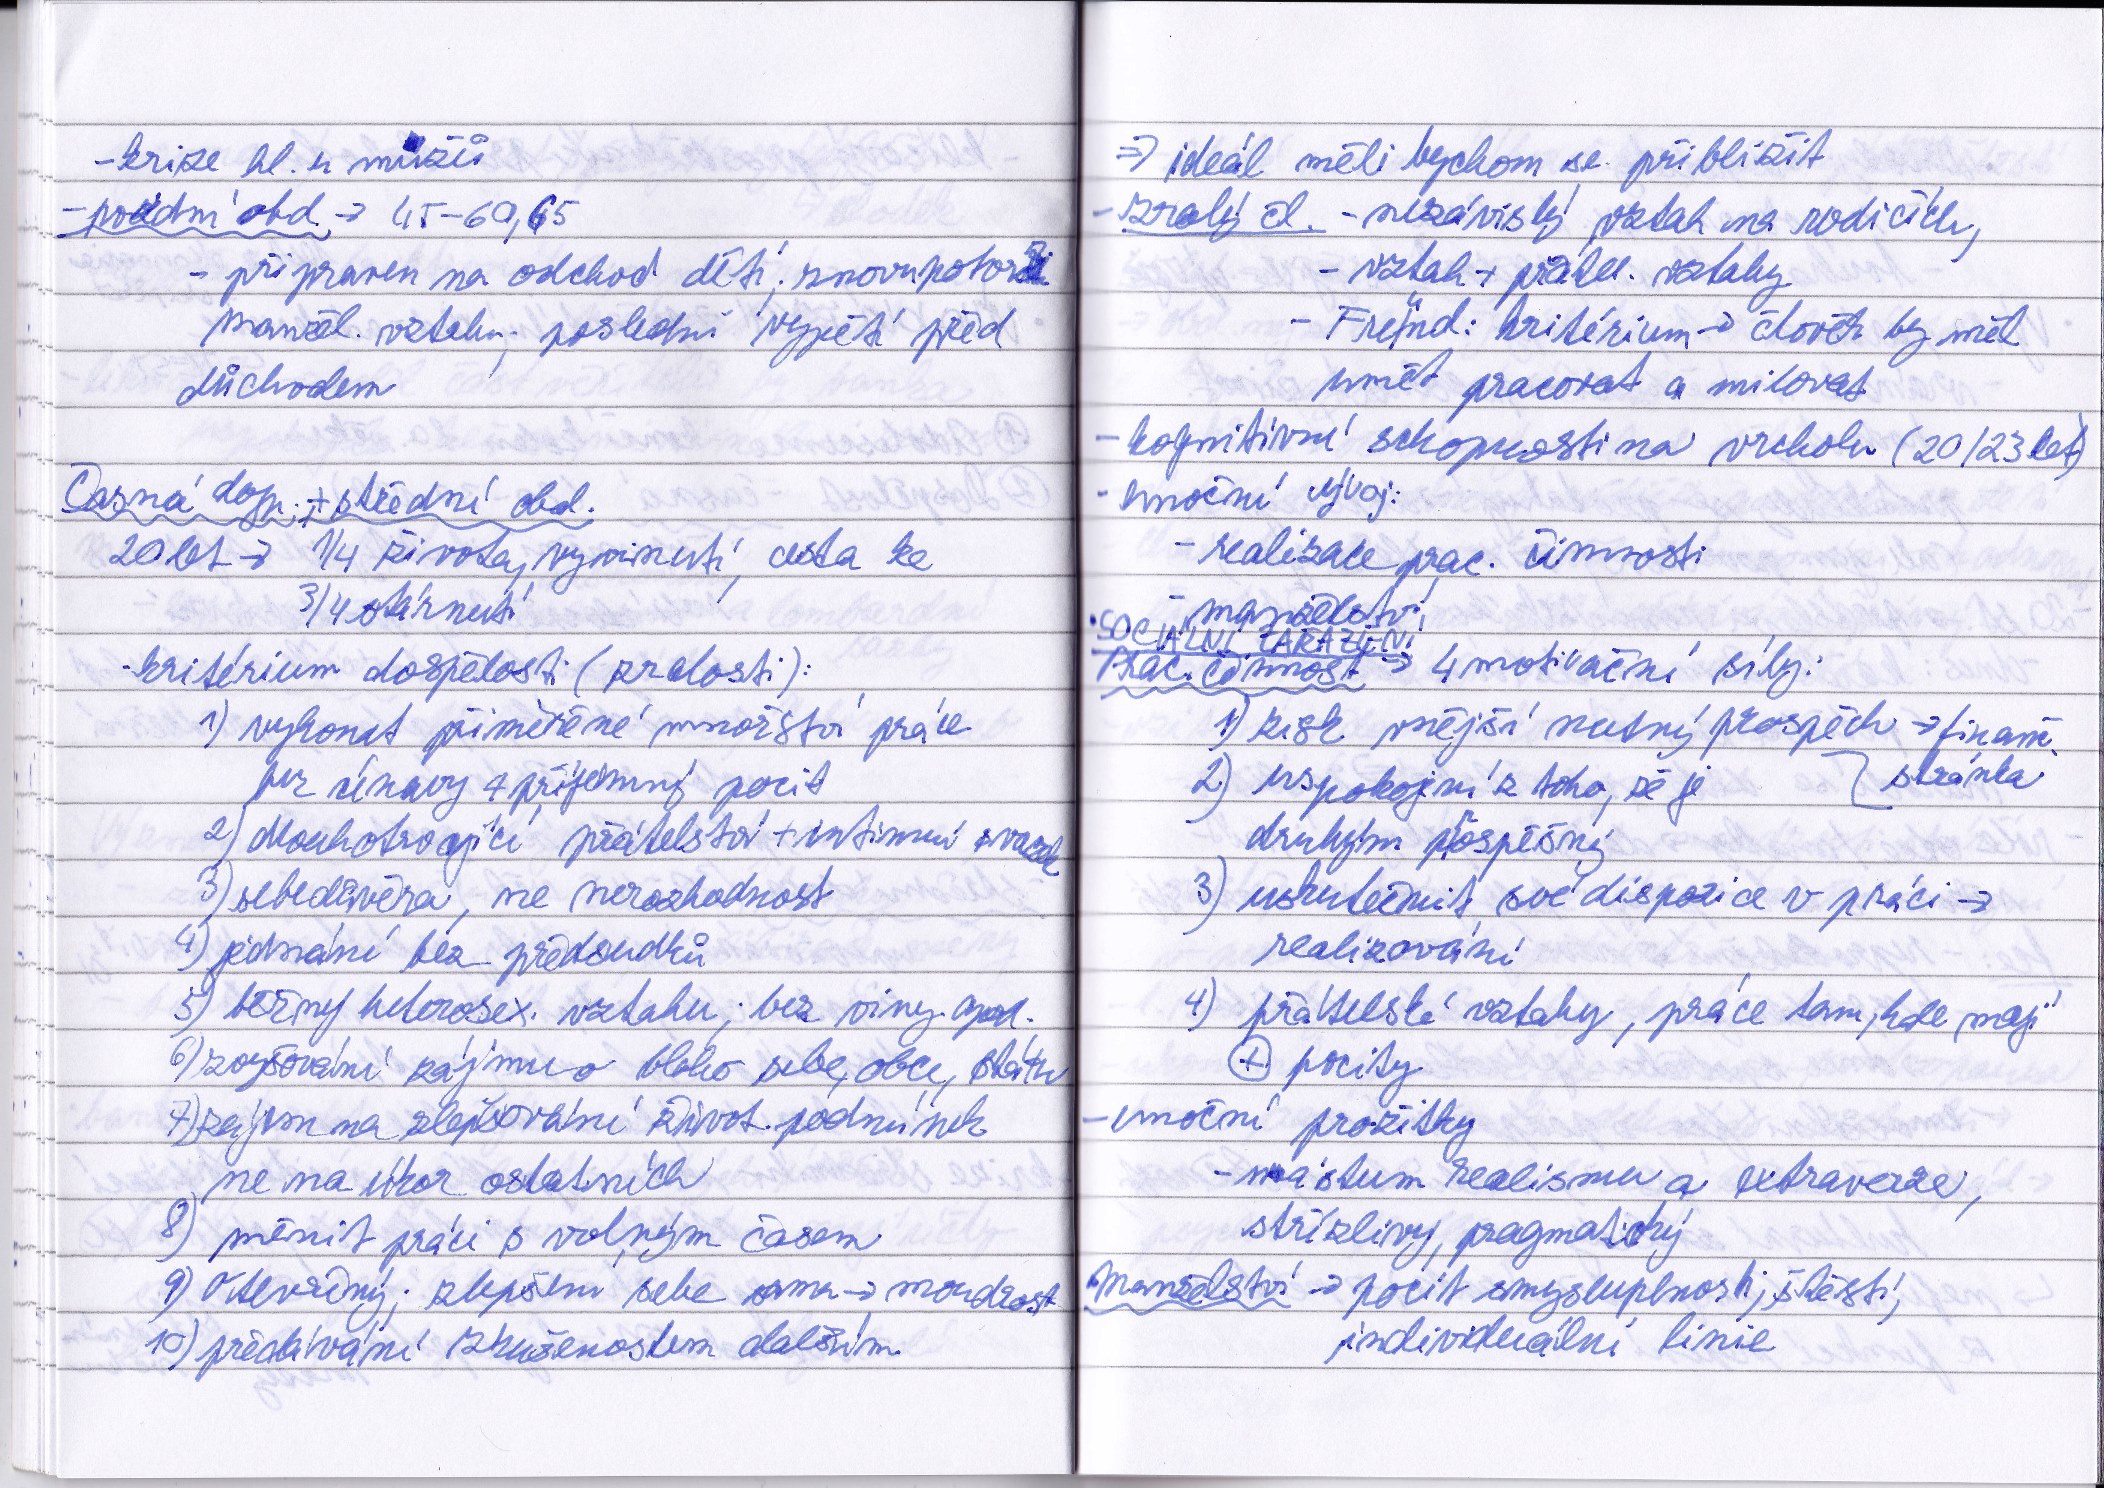 - krize hl. u mužů
- pozdní obd. → 45-60,65
- připraven na odchod dětí; znovupotvrz
manžel. vztahu; poslední vypětí před
důchodem
Časná dosp. + střední obd.
20 let → 1/4 života, vyvinutí, cesta ke
3/4 stárnutí
- kritérium dospělosti (zralosti):
1) vykonat přiměřené množství práce
bez únavy + příjemný pocit
2) dlouhotrvající přátelství + intimní svazek
3) sebedůvěra, ne nerozhodnost
4) jednání bez předsudků
5) běžný heterosex. vztahu; bez viny apod.
6) zvyšování zájmu o blaho sebe, obce, státu
7) zájem na zlepšování život. podmínek
ne na úkor ostatních
8) měnit práci s volným časem
9) otevřený; zlepšení sebe sama → moudrost
10) předávání zkušenostem dalším
⇒ ideál měli bychom se přiblížit
- zralý čl. - nezávislý vztah na rodičích,
- vztah + přátel. vztahy
- Frejnd: kritérium → člověk by měl
umět pracovat a milovat
- kognitivní schopnosti na vrcholu (20/23 let)
- emoční vývoj:
- realizace prac. činnosti
- manželství
SOCIÁLNÍ ZAŘAZENÍ
Prac. činnost → 4 motivační síly:
1) zisk vnější nutný prospěch → finanč.
2) uspokojení z toho, že je } stránka
druhým prospěšný
3) uskutečnit své dispozice v práci →
realizování
4) přátelské vztahy, práce tam, kde mají
⊕ pocity
- emoční prožitky
- nástum realismu a extraverze,
střízlivý, pragmatický
Manželství → pocit smysluplnosti, štěstí,
individuální linie